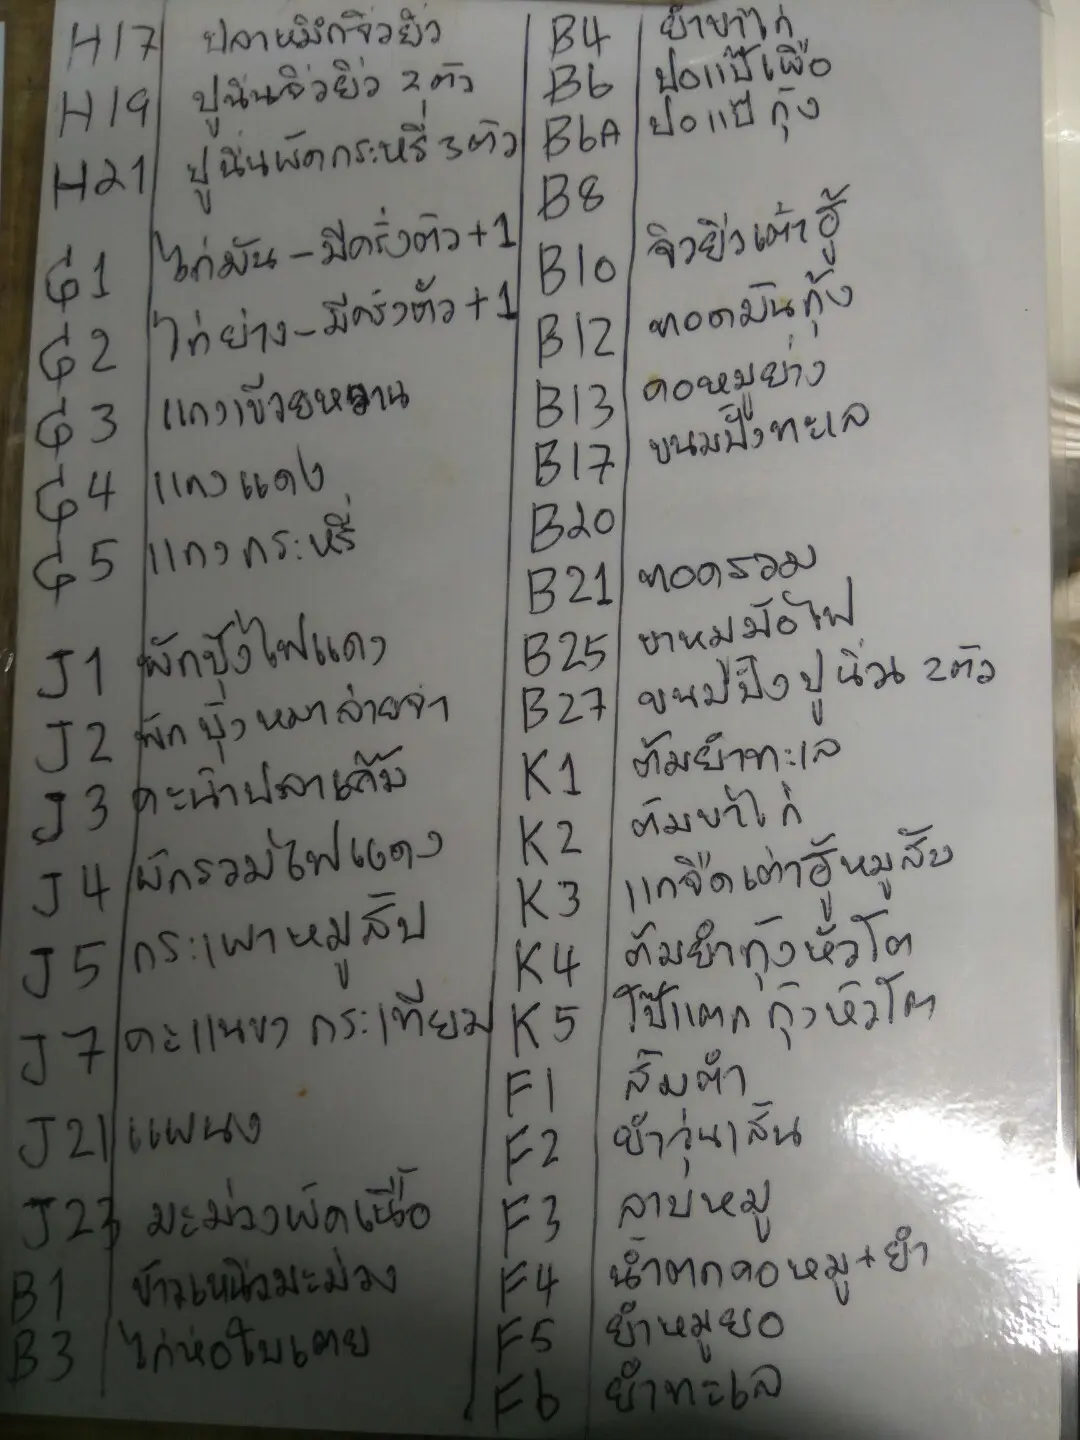 H17 ปลาหมึกจิ๋วยิ๋ว
H19 ปูนิ่มจิ๋วยิ๋ว 2 ตัว
H21 ปูนิ่มผัดกระหรี่ 3 ตัว
G1 ไก่มัน - มีครึ่งตัว + 1
G2 ไก่ย่าง - มีครึ่งตัว + 1
G3 แกงเขียวหวาน
G4 แกงแดง
G5 แกงกระหรี่
J1 ผักบุ้งไฟแดง
J2 ผักบุ้ง
J3 คะน้าปลาเค็ม
J4 ผักรวมไฟแดง
J5 กระเพาหมูสับ
J7 คะแนง กระเทียม
J21 แพนง
J23 มะม่วงผัดเนื้อ
B1 ข้าวเหนียวมะม่วง
B3 ไก่ห่อใบเตย
B4 ยำขาไก่
B6 ปอเปี๊ยเผือ
B6A ปอเปี๊ย กุ้ง
B8
B10 จิ๋วยิ๋วเต้าฮู้
B12 ทอดมันกุ้ง
B13 คอหมูย่าง
B17 ขนมปังทะเล
B20
B21 ทอดรวม
B25 ขาหมูมือไฟ
B27 ขนมปัง ปูนิ่ม 2 ตัว
K1 ต้มยำทะเล
K2 ต้มข่าไก่
K3 แกจืดเต้าฮู้หมูสับ
K4 ต้มยำกุ้งหัวโต
K5 โป๊แตก กุ้งหัวโต
F1 ส้มตำ
F2 ยำวุ่นเส้น
F3 ลาบหมู
F4 น้ำตกคอหมู + ยำ
F5 ยำหมูยอ
F6 ยำทะเล